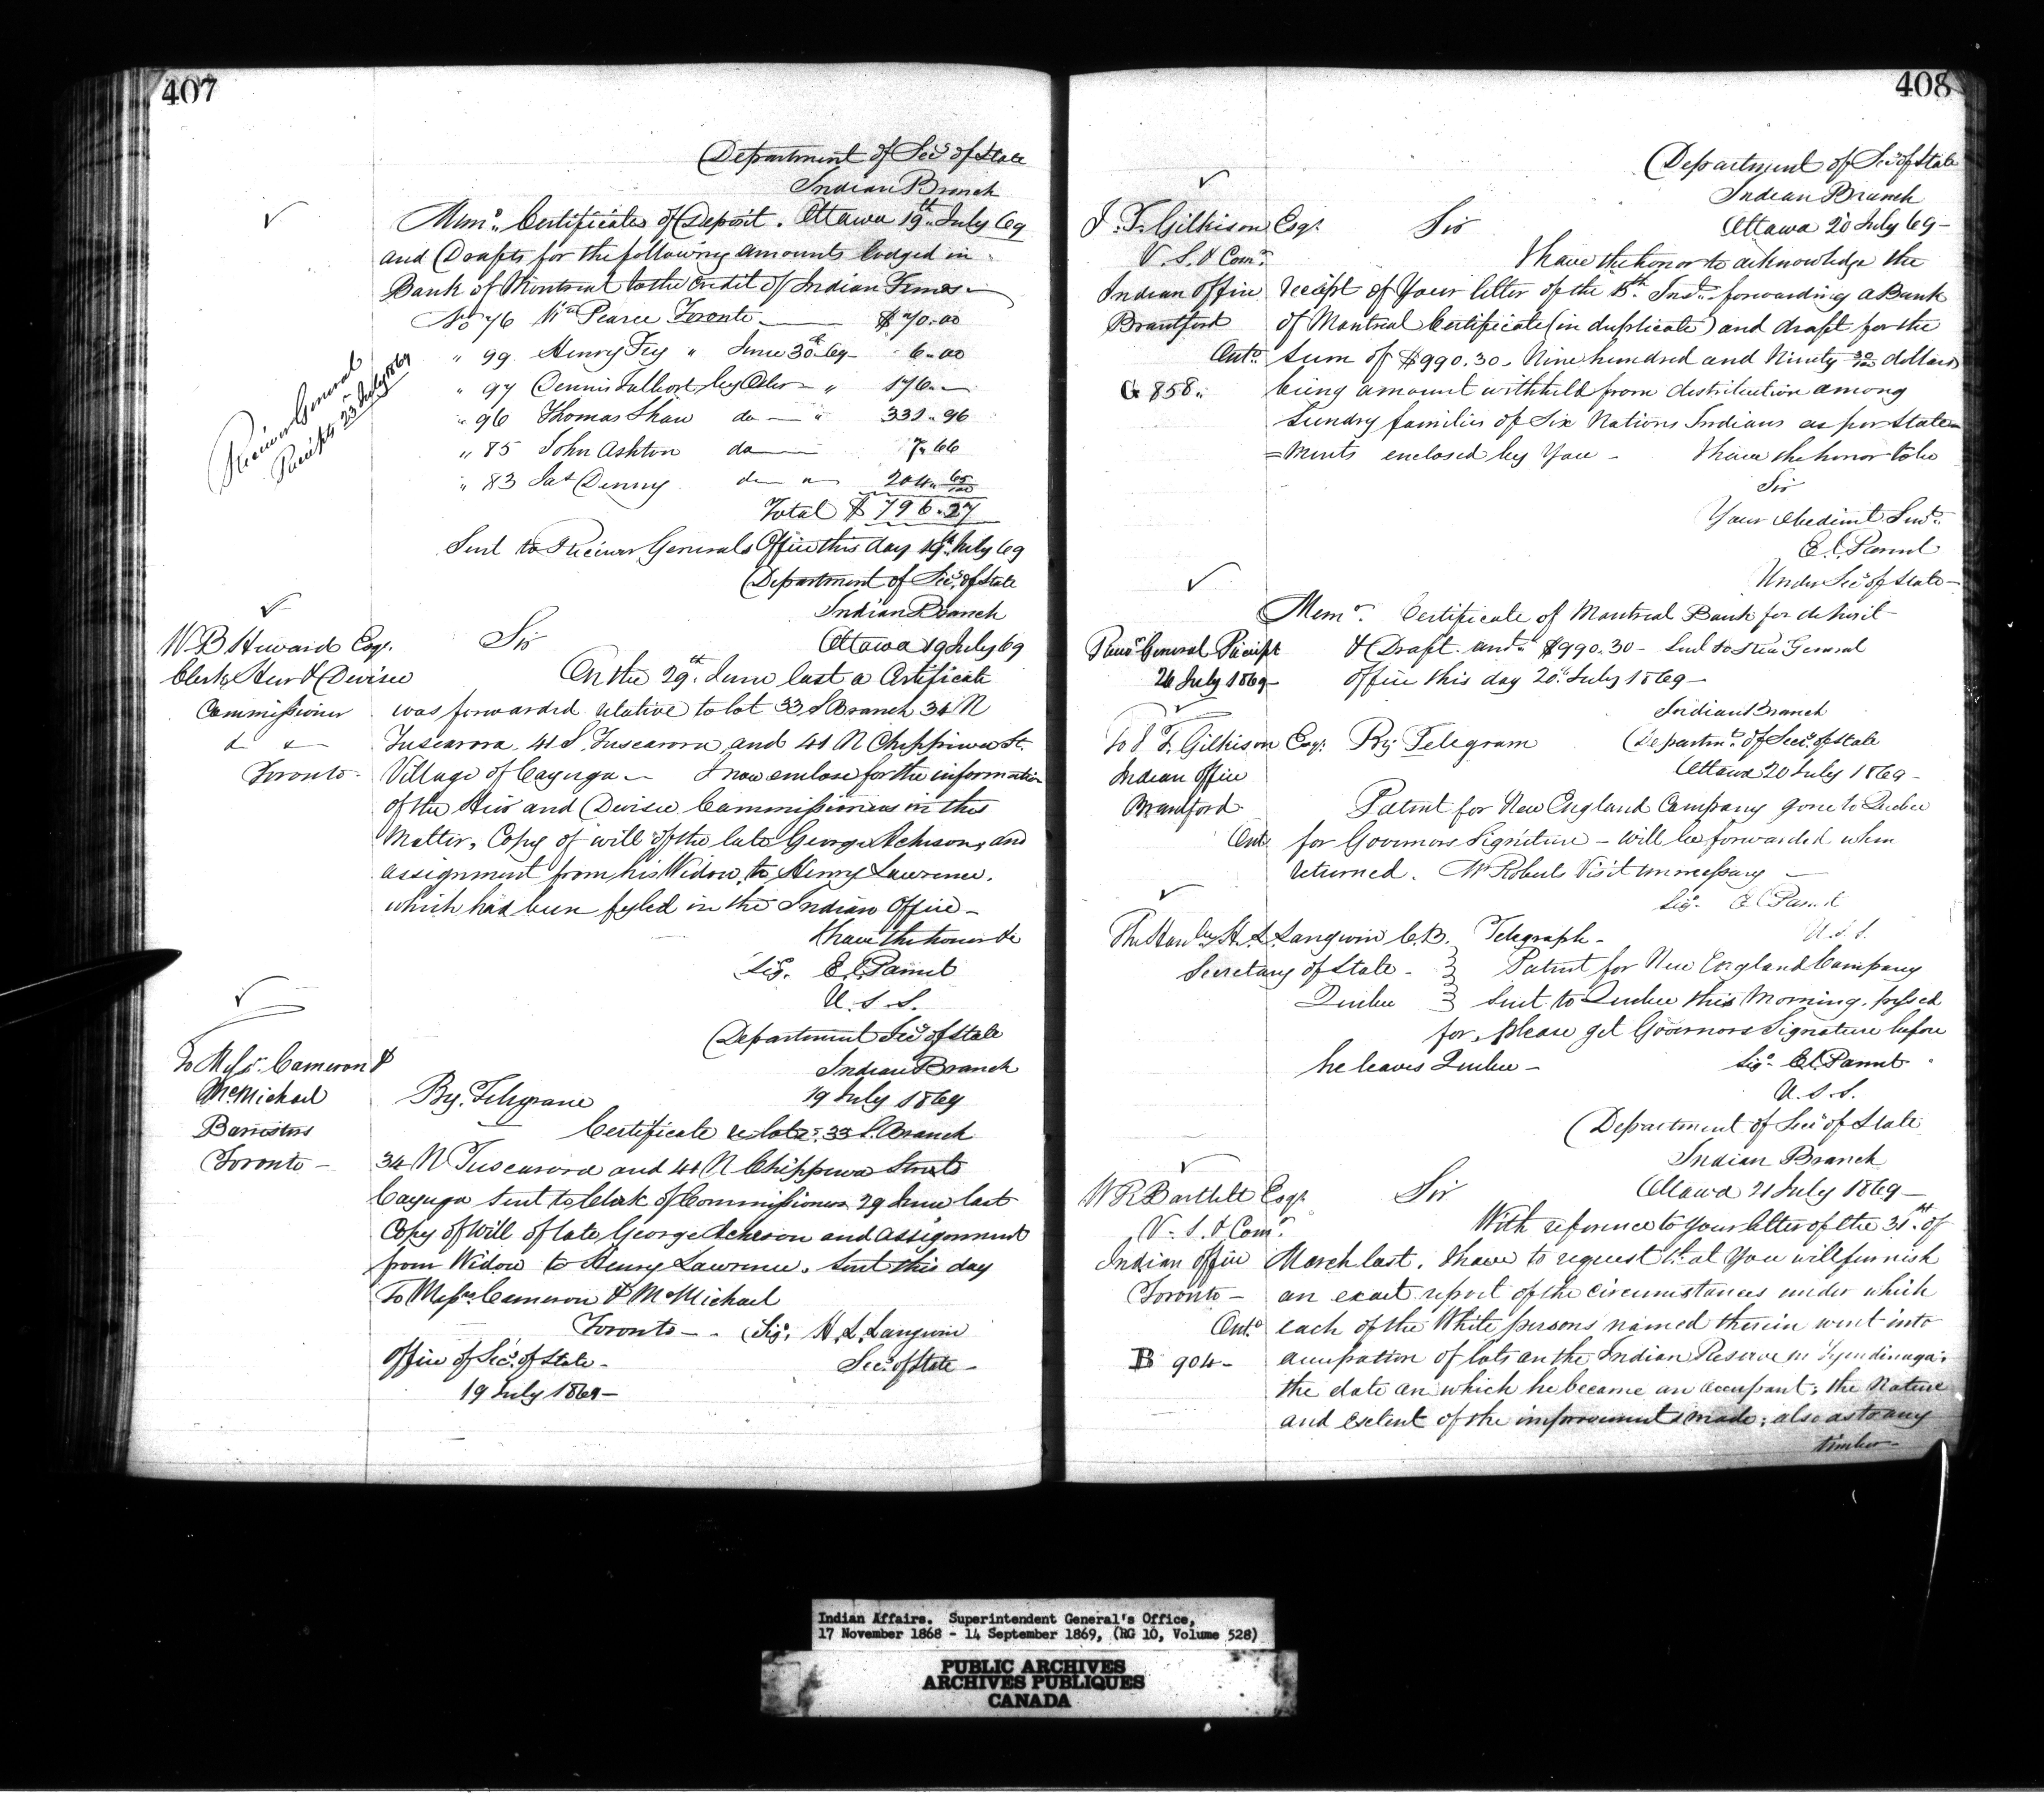 407
Department of Secy of State
Indian Branch
Memo. Certificates of Deposit. Ottawa 19th July 69
and Drafts for the following amounts lodged in
Bank of Montreal to the credit of Indian Funds
No 76 Wm Pearce Toronto $70.00
" 99 Henry Fry " June 30th 69 6.00
" 97 Dennis Talbot by Osler " 176.
" 96 Thomas Shaw do " 331.96
" 85 John Ashton do 7.66
" 83 Jas Denny do " 204 65/100
Total $796.27
Receiver General
Receipts 23 July 1869
Sent to Receiver Generals Office this day 19th July 69
Department of Secy of State
Indian Branch
W B Heward Esqr.
Sir
Ottawa 19 July 69
Clerk, Heir & Devisee
Commissioner
& &
Toronto
On the 29th June last a Certificate
was forwarded relative to lot 33 S Branch 34 N
Tuscarora. 41 S. Tuscarora, and 41 N Chippewa St.
Village of Cayuga - I now enclose for the information
of the Heir and Devisee Commissioners in this
Matter, Copy of will of the late George Acheson, and
assignment from his Widow, to Henry Lawrence,
which had been fyled in the Indian Office -
I have the honor &c
Sig. E. Parent
U. S. S.
Department Secy of State
Indian Branch
19 July 1869
To Messrs. Cameron &
McMichael
Barristers
Toronto -
By. Telegram
Certificate re lots. 33 S. Branch
34 N Tuscarora and 41 N Chippewa Streets
Cayuga sent to Clerk of Commissioners 29 June last
Copy of Will of late George Acheson and assignment
from Widow to Henry Lawrence. Sent this day
To Messrs. Cameron & McMichael
Toronto - Sig. H. L. Langevin
Secy. of State -
Office of Secy. of State -
19 July 1869 -
408
Department of Secy of State
Indian Branch
J. T. Gilkison Esqr.
Sir
Ottawa 20 July 69 -
V. S. & Comr.
Indian Office
Brantford
Onto.
G 858.
I have the honor to acknowledge the
receipt of Your letter of the 15th Inst. forwarding a Bank
of Montreal Certificate (in duplicate) and draft for the
sum of $990.30 - Nine hundred and Ninety 30/100 dollars
being amount withheld from distribution among
Sundry families of Six Nations Indians as per State=
=ments enclosed by You - I have the honor to be
Sir
Your obedient Servt.
E. Parent
Under Secy of State -
Memo. Certificate of Montreal Bank for deposit
& Draft amt. $990.30 - Sent to Recr General
Office this day 20. July 1869 -
Recr General Receipt
26 July 1869 -
Indian Branch
Departmt. of Secy. of State
Ottawa 20 July 1869 -
To J T. Gilkison Esqr.
Indian Office
Brantford
Ont
By Telegram
Patent for New England Company gone to Quebec
for Governors Signature - will be forwarded when
returned. Mr Roberts Visit unnecessary -
Sig. E Parent
U. S. S.
The Honble H. L. Langevin C.B.
Secretary of State -
Quebec
Telegraph -
Patent for New England Company
Sent to Quebec this Morning, pressed
for, please get Governors Signature before
he leaves Quebec -
Sig. E. Parent
U. S. S.
Department of Secy of State
Indian Branch
W R Bartlett Esqr.
Sir
Ottawa 21 July 1869 -
V. S. & Comr.
Indian Office
Toronto -
Ont.o
B 904 -
With reference to Your letter of the 31st. of
March last. I have to request that You will furnish
an exact report of the circumstances under which
each of the White persons named therein went into
occupation of lots on the Indian Reserve in Tyendinaga;
the date on which he became an occupant; the Nature
and extent of the improvements made; also as to any
timber -
Indian Affairs. Superintendent General's Office,
17 November 1868 - 14 September 1869, (RG 10, Volume 528)
PUBLIC ARCHIVES
ARCHIVES PUBLIQUES
CANADA